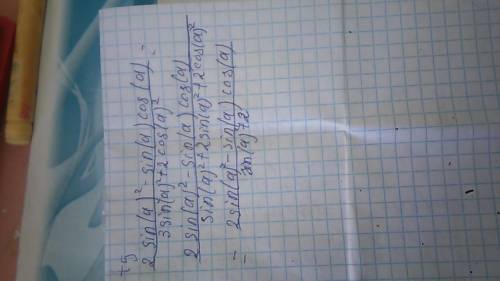 2 sin(a)² - sin(a) cos(a)
3 sin(a)² + 2 cos(a)² =
2 sin(a)² - sin(a) cos(a)
sin(a)² + 2 sin(a)² + 2 cos(a)²
= 2 sin(a)² - sin(a) cos(a)
sin(a) + 2